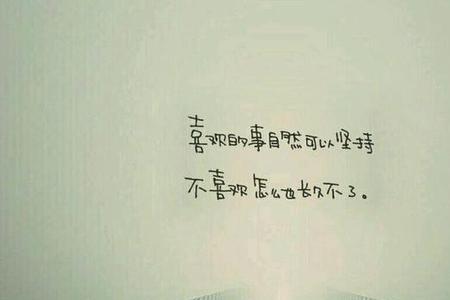 喜欢的事自然可以坚持
不喜欢怎么也长久不了。